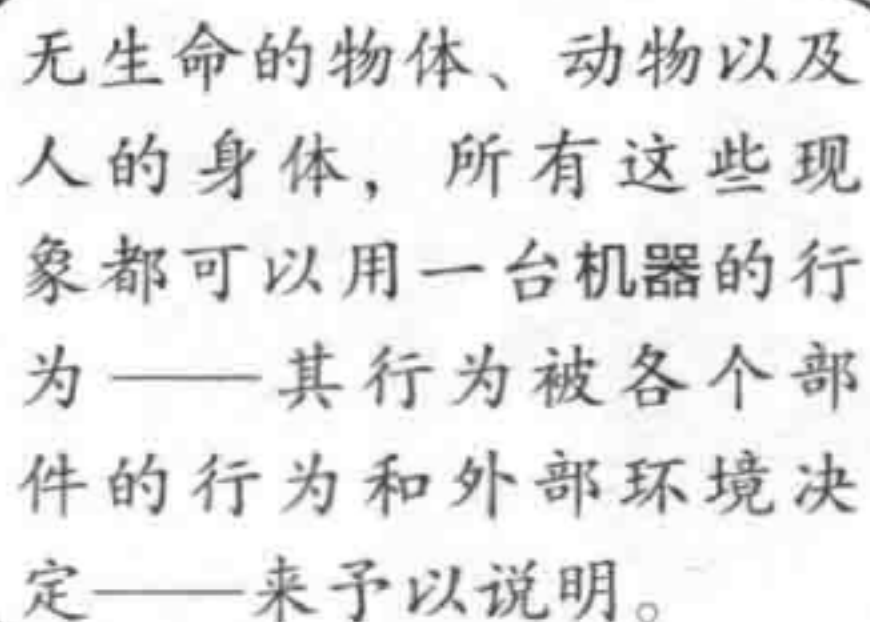 无生命的物体、动物以及
人的身体，所有这些现
象都可以用一台机器的行
为——其行为被各个部
件的行为和外部环境决
定——来予以说明。